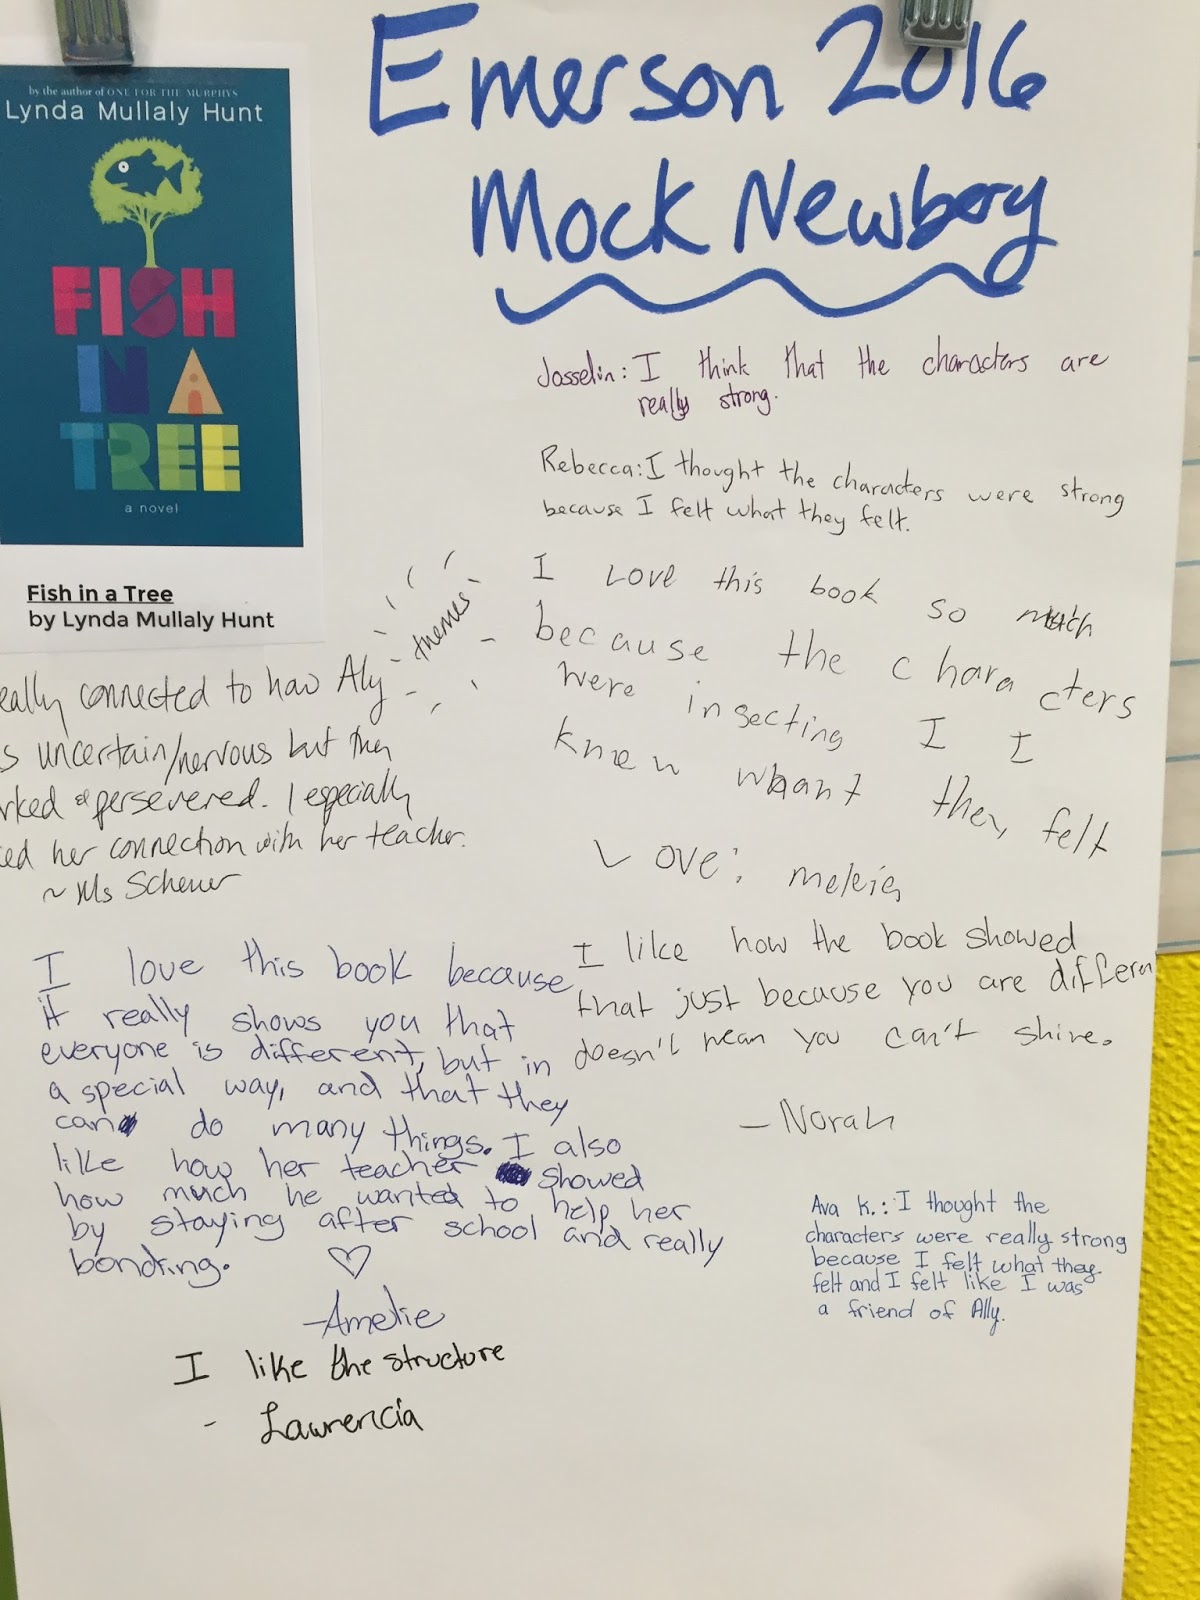 by the author of ONE FOR THE MURPHYS
Lynda Mullaly Hunt
FISH
IN A
TREE
a novel
Fish in a Tree
by Lynda Mullaly Hunt
Emerson 2016
Mock Newbery
Josselin: I think that the characters are
really strong.
Rebecca: I thought the characters were strong
because I felt what they felt.
themes
I Love this book so much
because the characters
were insecting I I
knew whant they felt
Love:
eally connected to how Aly
s uncertain/nervous but then
rked & persevered. I especially
ed her connection with her teacher.
~ Ms Scheuer
I like how the book showed
that just because you are differen
doesn't mean you can't shine.
- Norah
I love this book because
it really shows you that
everyone is different, but in
a special way, and that they
can do many things. I also
like how her teacher showed
how much he wanted to help her
by staying after school and really
bonding.
-Amelie
Ava K.: I thought the
characters were really strong
because I felt what they
felt and I felt like I was
a friend of Ally.
I like the structure
- Lawrencia